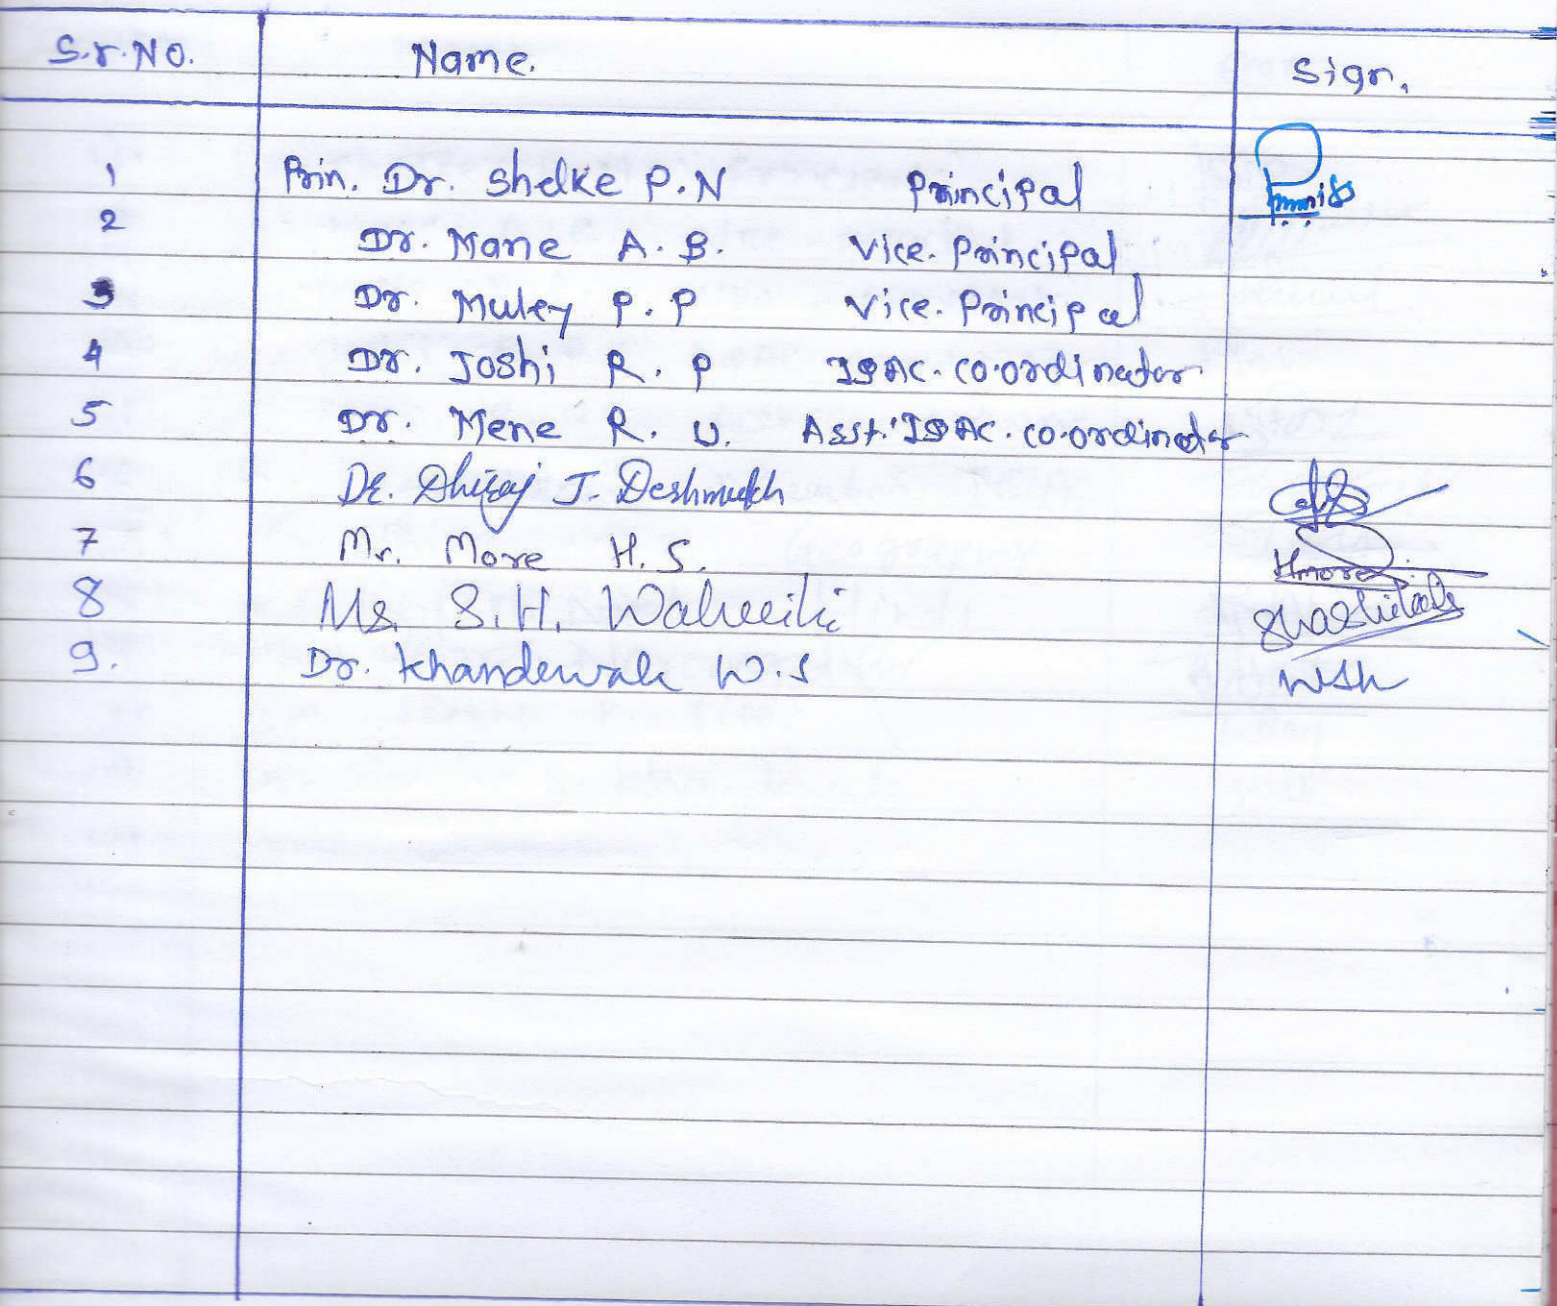 S.r.No. Name. Sign.
1 Prin. Dr. Shelke P.N Principal
2 Dr. Mane A. B. Vice. Principal
3 Dr. Muley P. P Vice. Principal
4 Dr. Joshi R. P IQAC. Co.ordinator
5 Dr. Mene R. U. Asst. IQAC. Co.ordinator
6 Dr. Dhiraj J. Deshmukh
7 Mr. More H. S. Hmore
8 Ms. S.H.
9. Dr. Khandewale W.S WSK